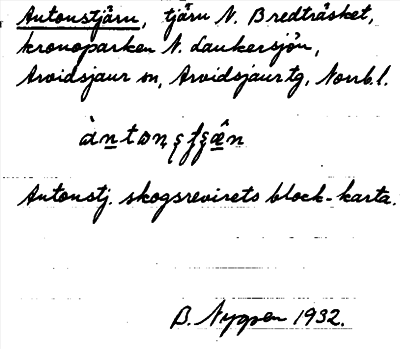 Antonstjärn, tjärn N. Bredträsket,
kronoparken N. Laukersjön,
Arvidsjaur sn, Arvidsjaur tg, Norrb. l.
Antonstj. skogsrevirets block-karta.
B. Nygren 1932.